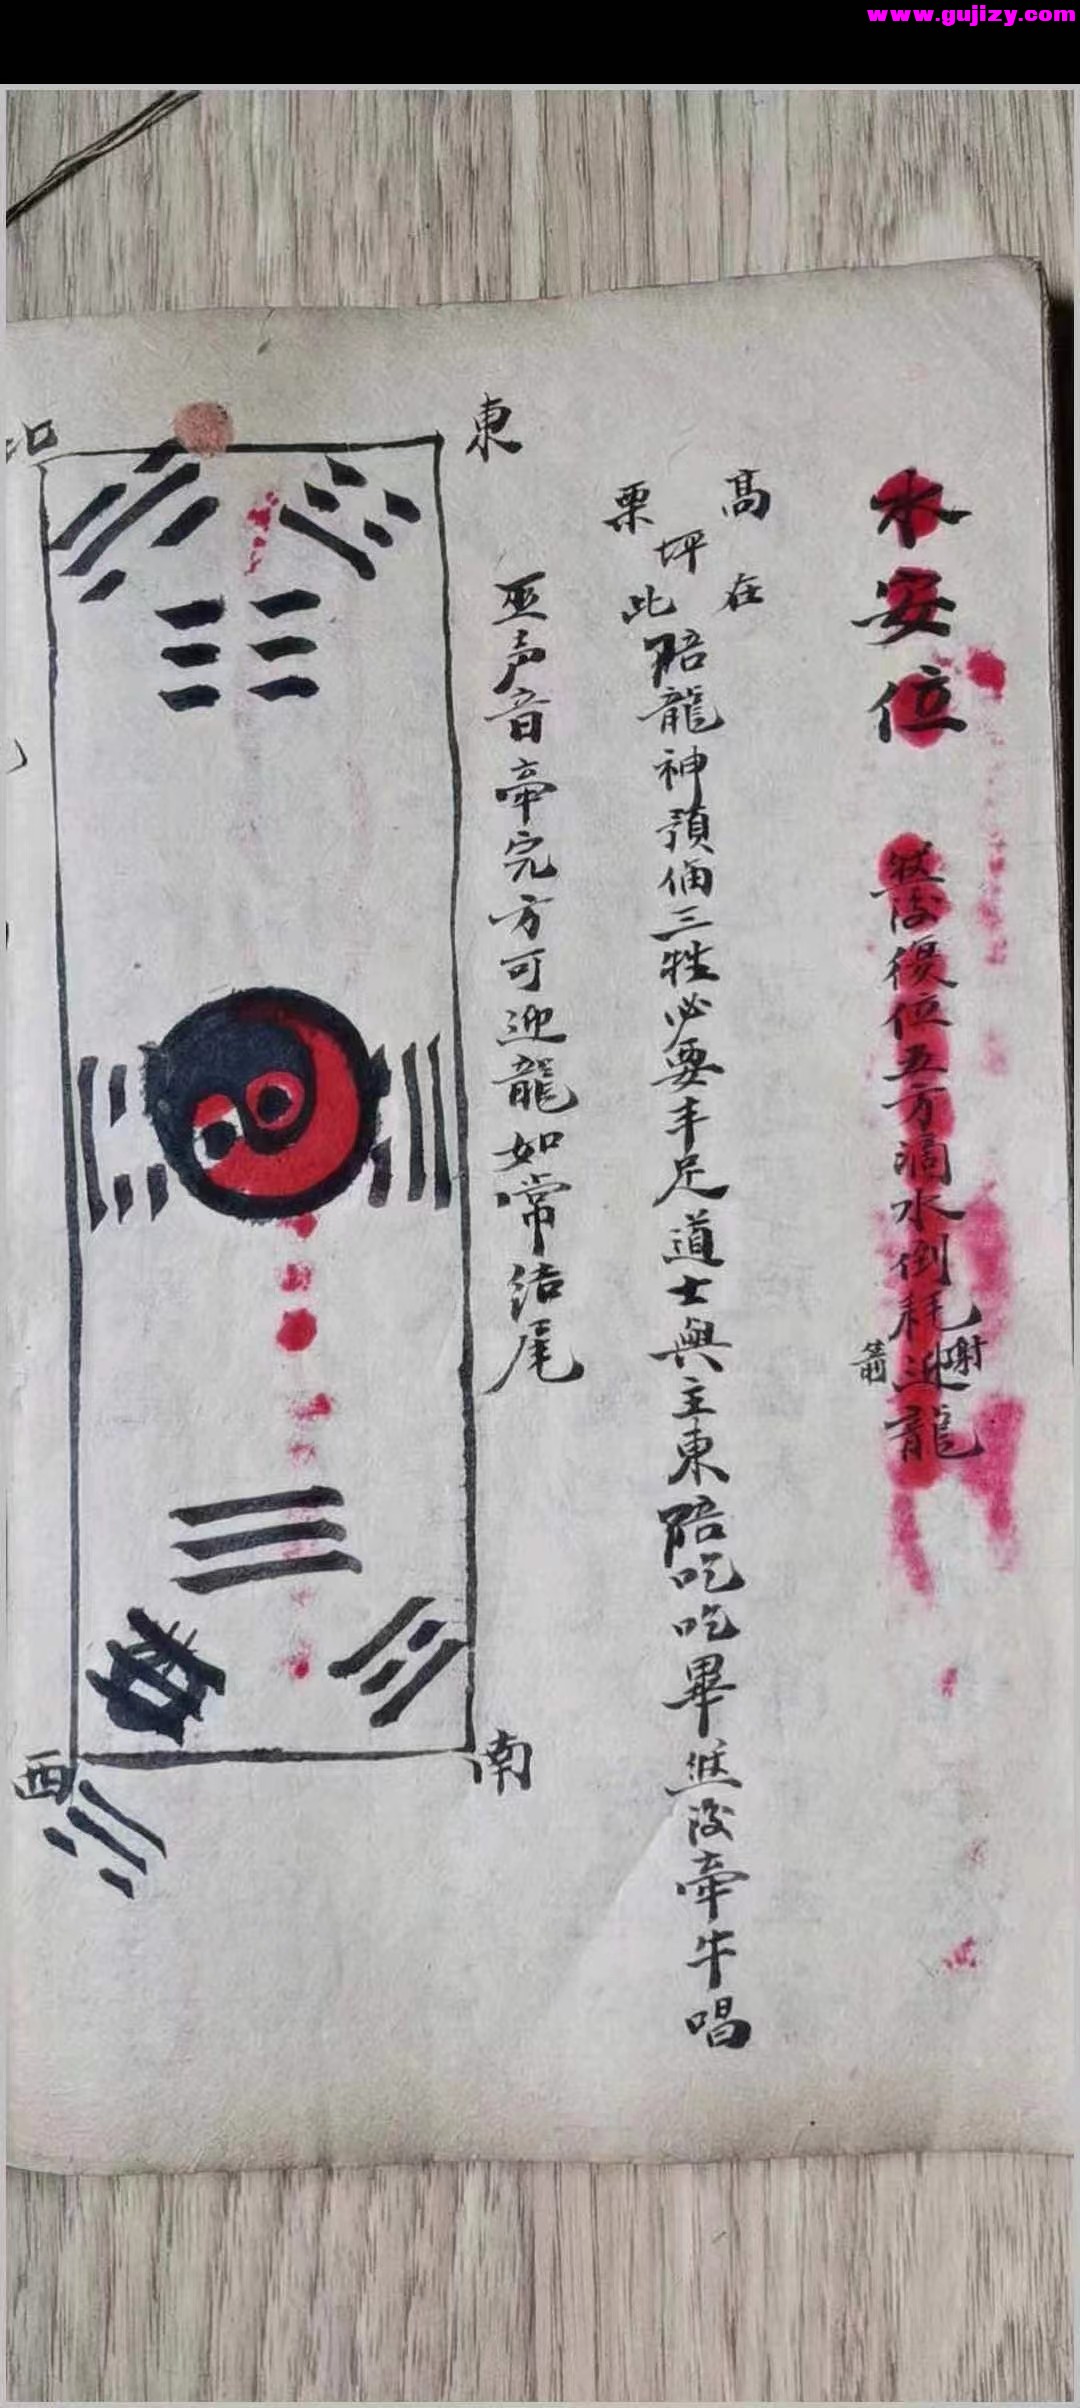 www.gujizy.com
水安位
然後復位五方滴水倒耗迎龍
謝
高在
坪
栗
此陪龍神預俻三牲必要丰足道士與主東陪吃吃畢然後牽牛唱
巫声音牽完方可迎龍如常结尾
東
北
南
西